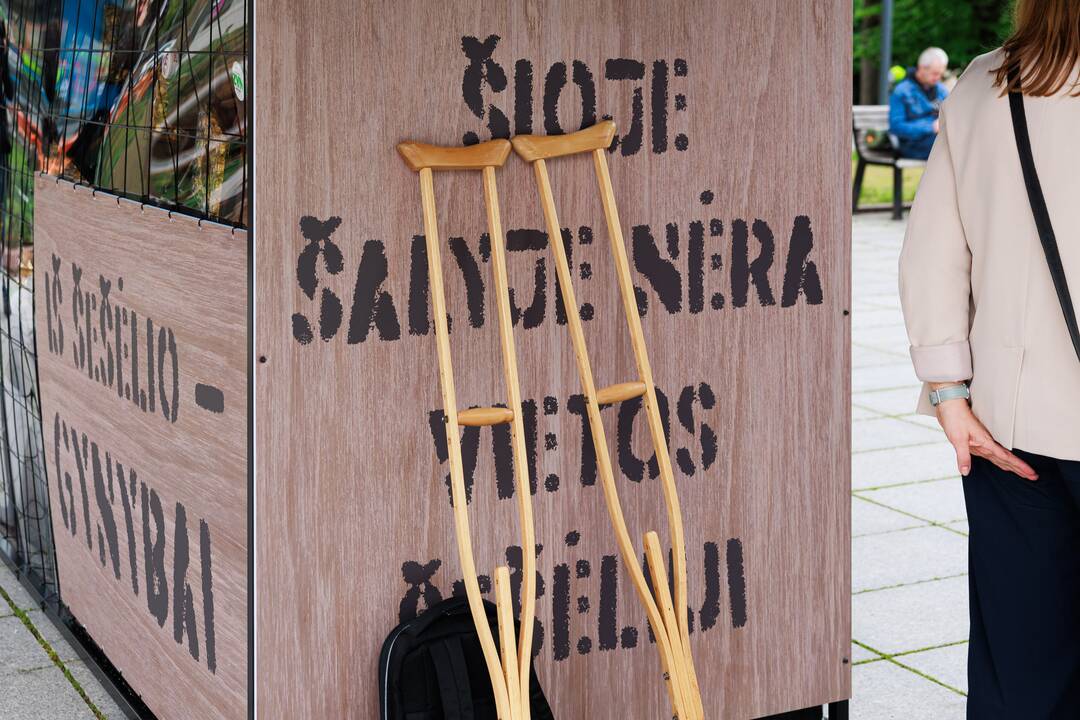 IŠ ŠEŠĖLIO –
GYNYBAI
ŠIOJE
ŠALYJE NĖRA
VIETOS
ŠEŠĖLIUI